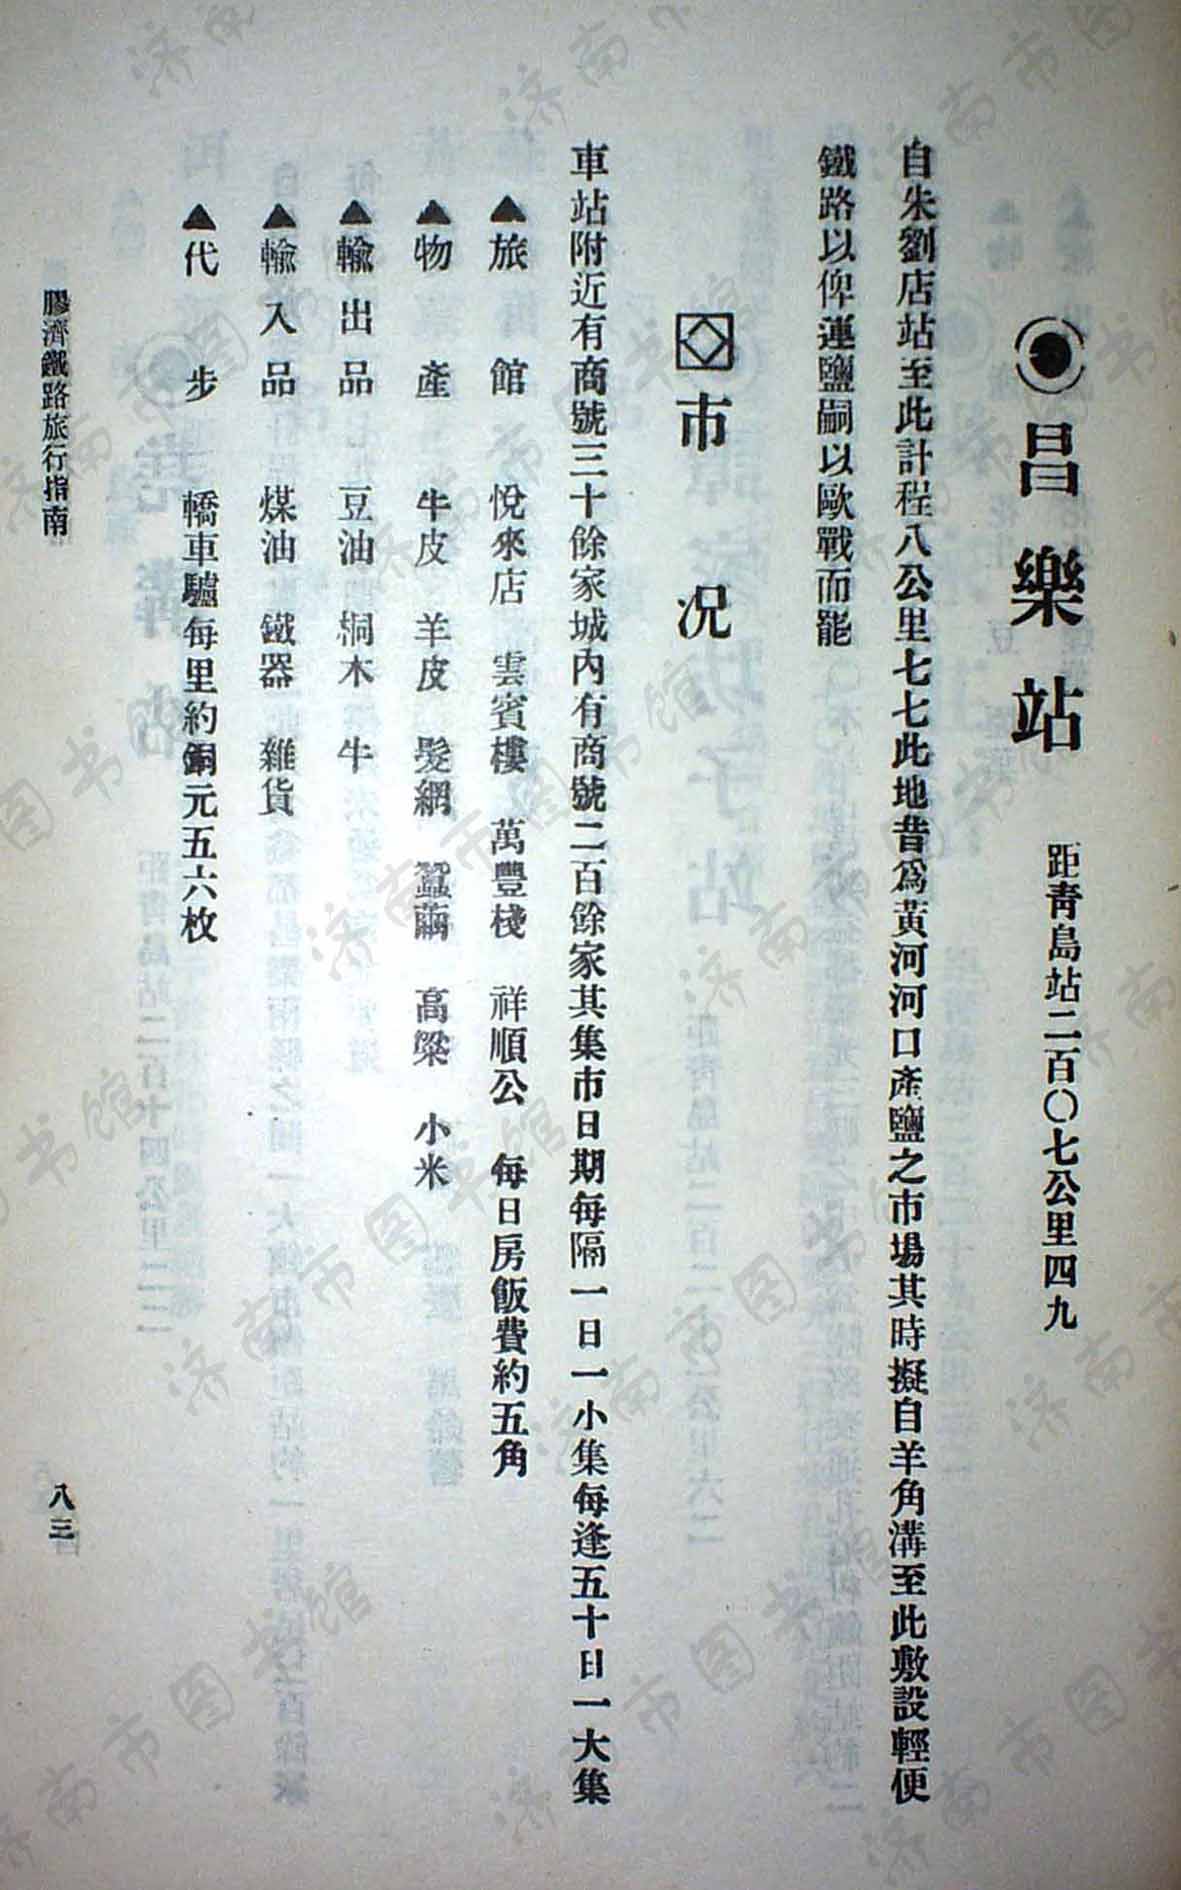 昌樂站　距靑島站二百〇七公里四九
自朱劉店站至此計程八公里七七此地昔爲黃河河口產鹽之市場其時擬自羊角溝至此敷設輕便
鐵路以俾運鹽嗣以歐戰而罷
市況
車站附近有商號三十餘家城內有商號二百餘家其集市日期每隔一日一小集每逢五十日一大集
▲旅館　悅來店　雲賓樓　萬豐棧　祥順公　每日房飯費約五角
▲物產　牛皮　羊皮　髮網　蠶繭　高粱　小米
▲輸出品　豆油　桐木　牛
▲輸入品　煤油　鐵器　雜貨
▲代步　轎車驢每里約銅元五六枚
膠濟鐵路旅行指南
八三
济南市图书馆